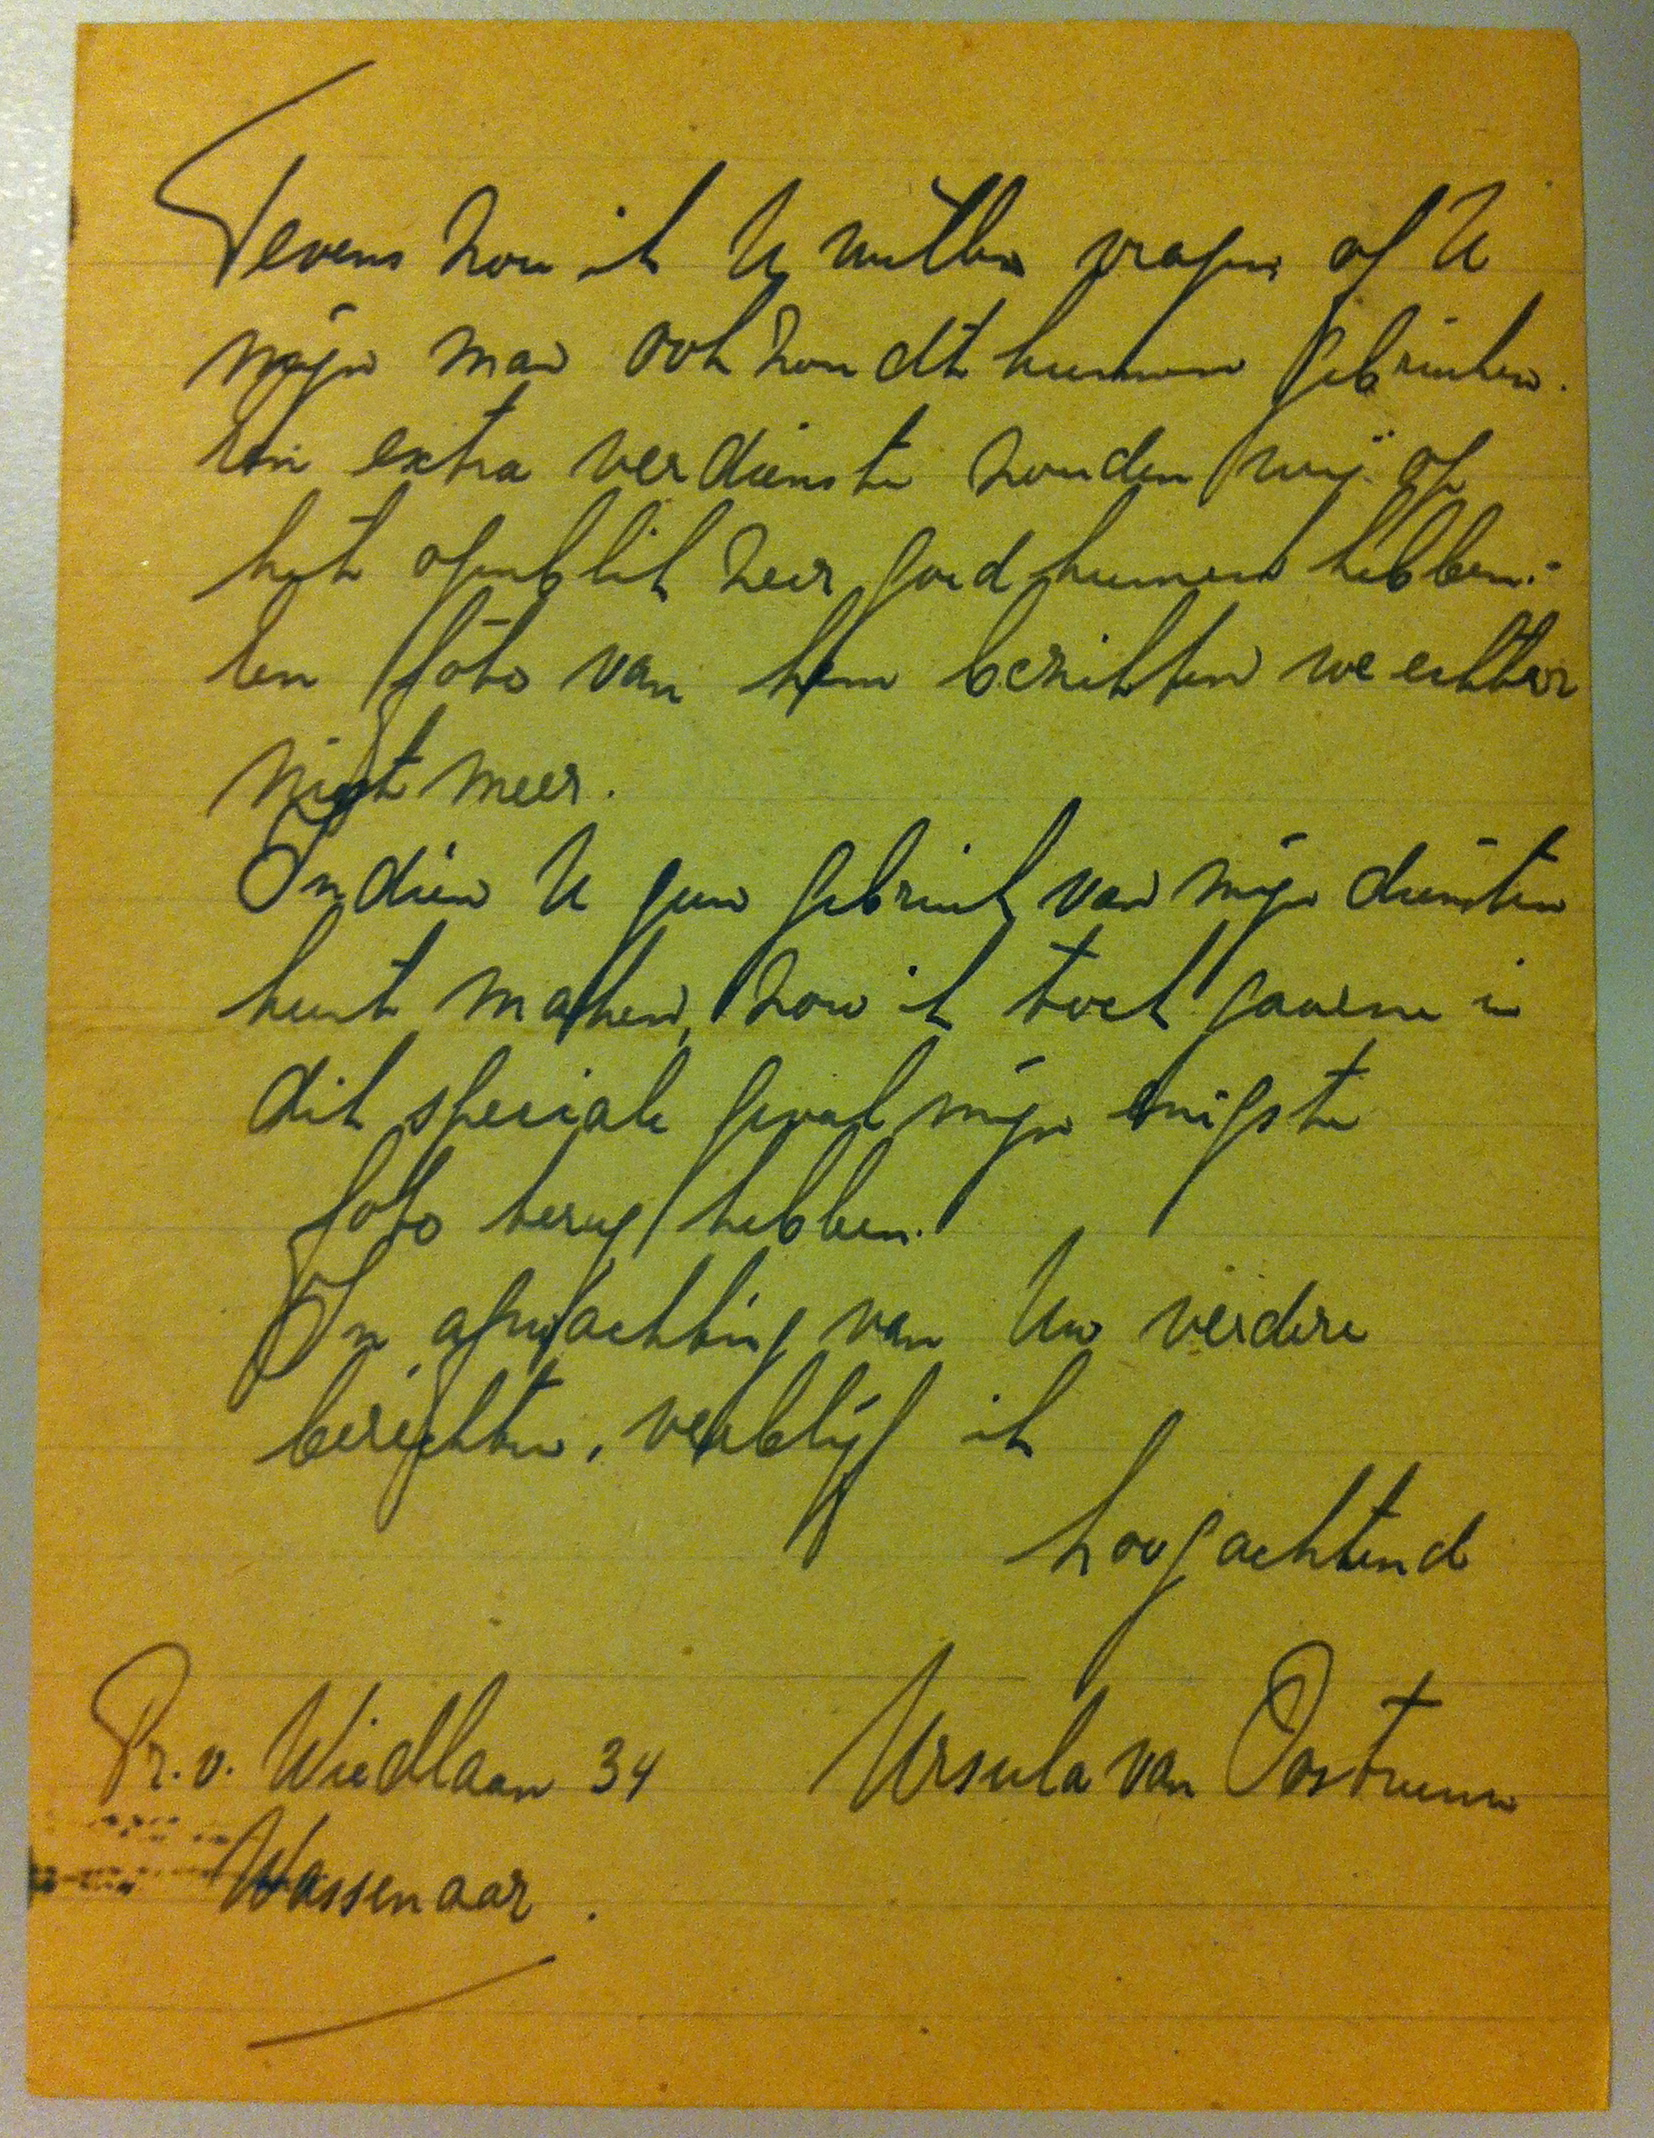 Tevens zou ik U willen vragen of U
mijn man ook zoudt kunnen gebruiken.
Een extra verdienste zouden wij op
het ogenblik zeer goed kunnen hebben.-
Een foto van hem bezitten we echter
niet meer.
Indien U geen gebruik van mijn diensten
kunt maken, zou ik toch gaarne in
dit speciale geval mijn enigste
foto terug hebben.
In afwachting van Uw verdere
berichten, verblijf ik
hoogachtend
Pr. v. Wiedlaan 34 Ursula van Oostrum
Wassenaar.